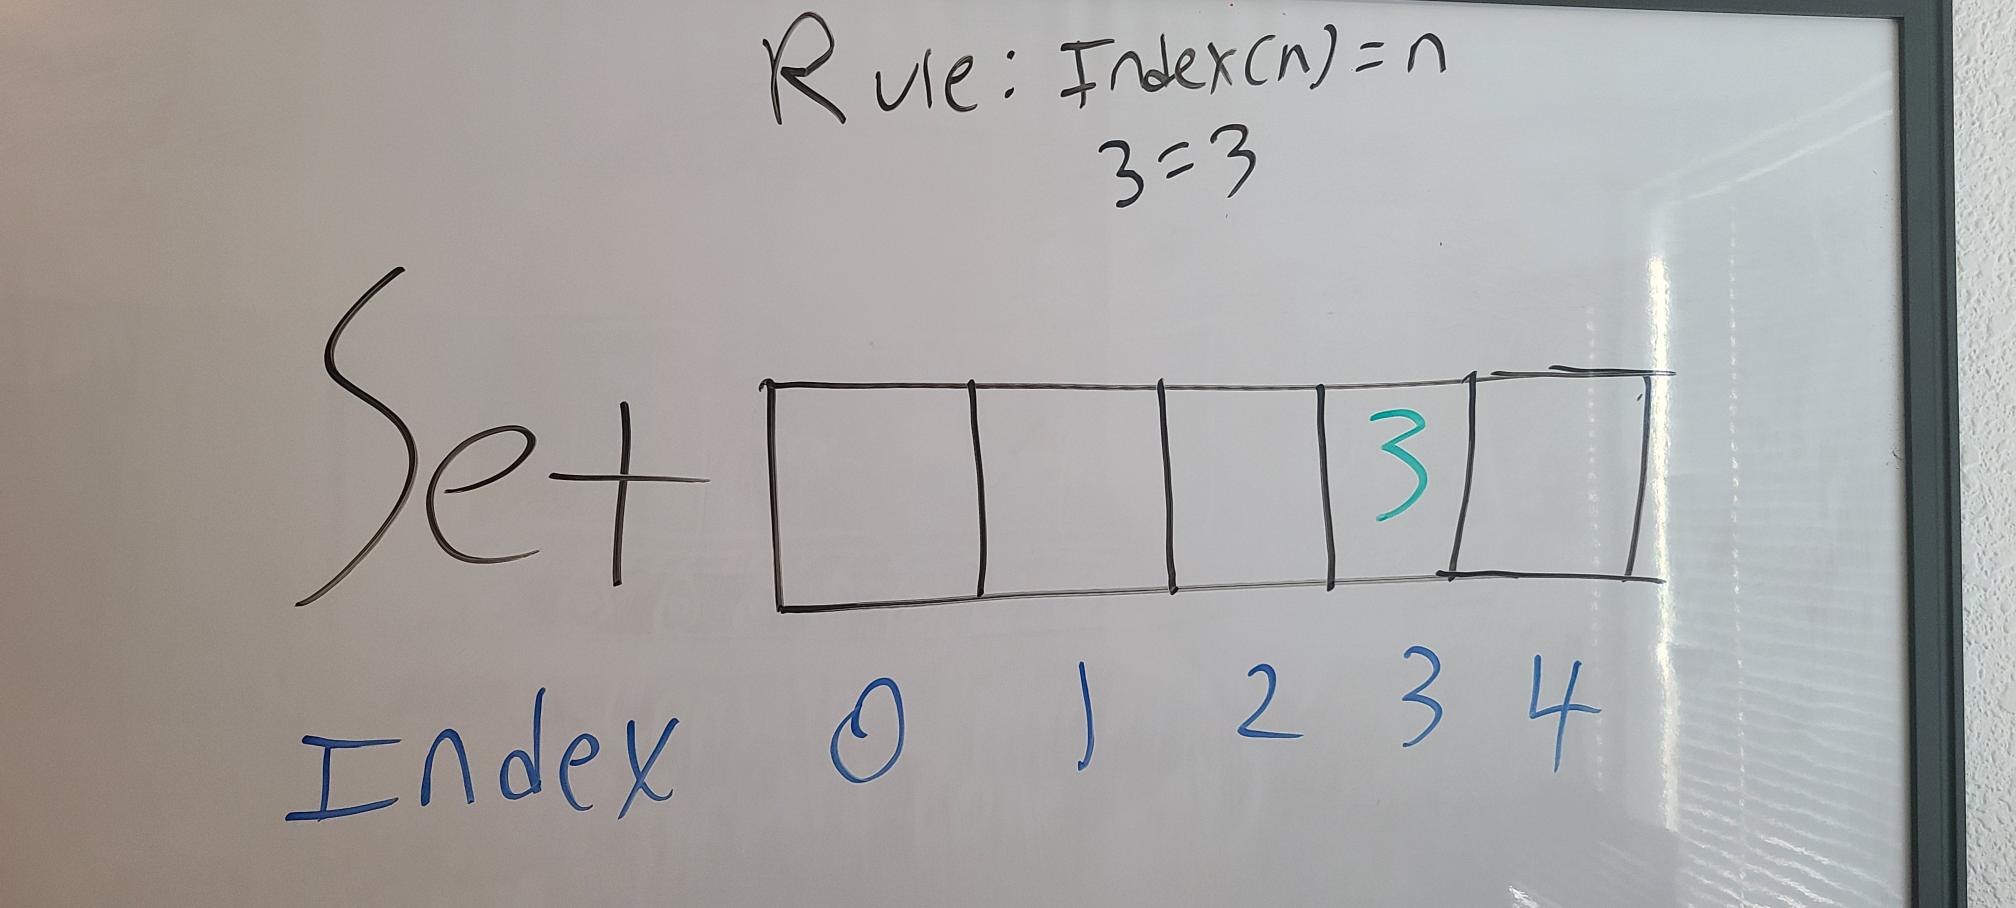 Rule: Index(n)=n
3=3
Set 3
Index 0 1 2 3 4